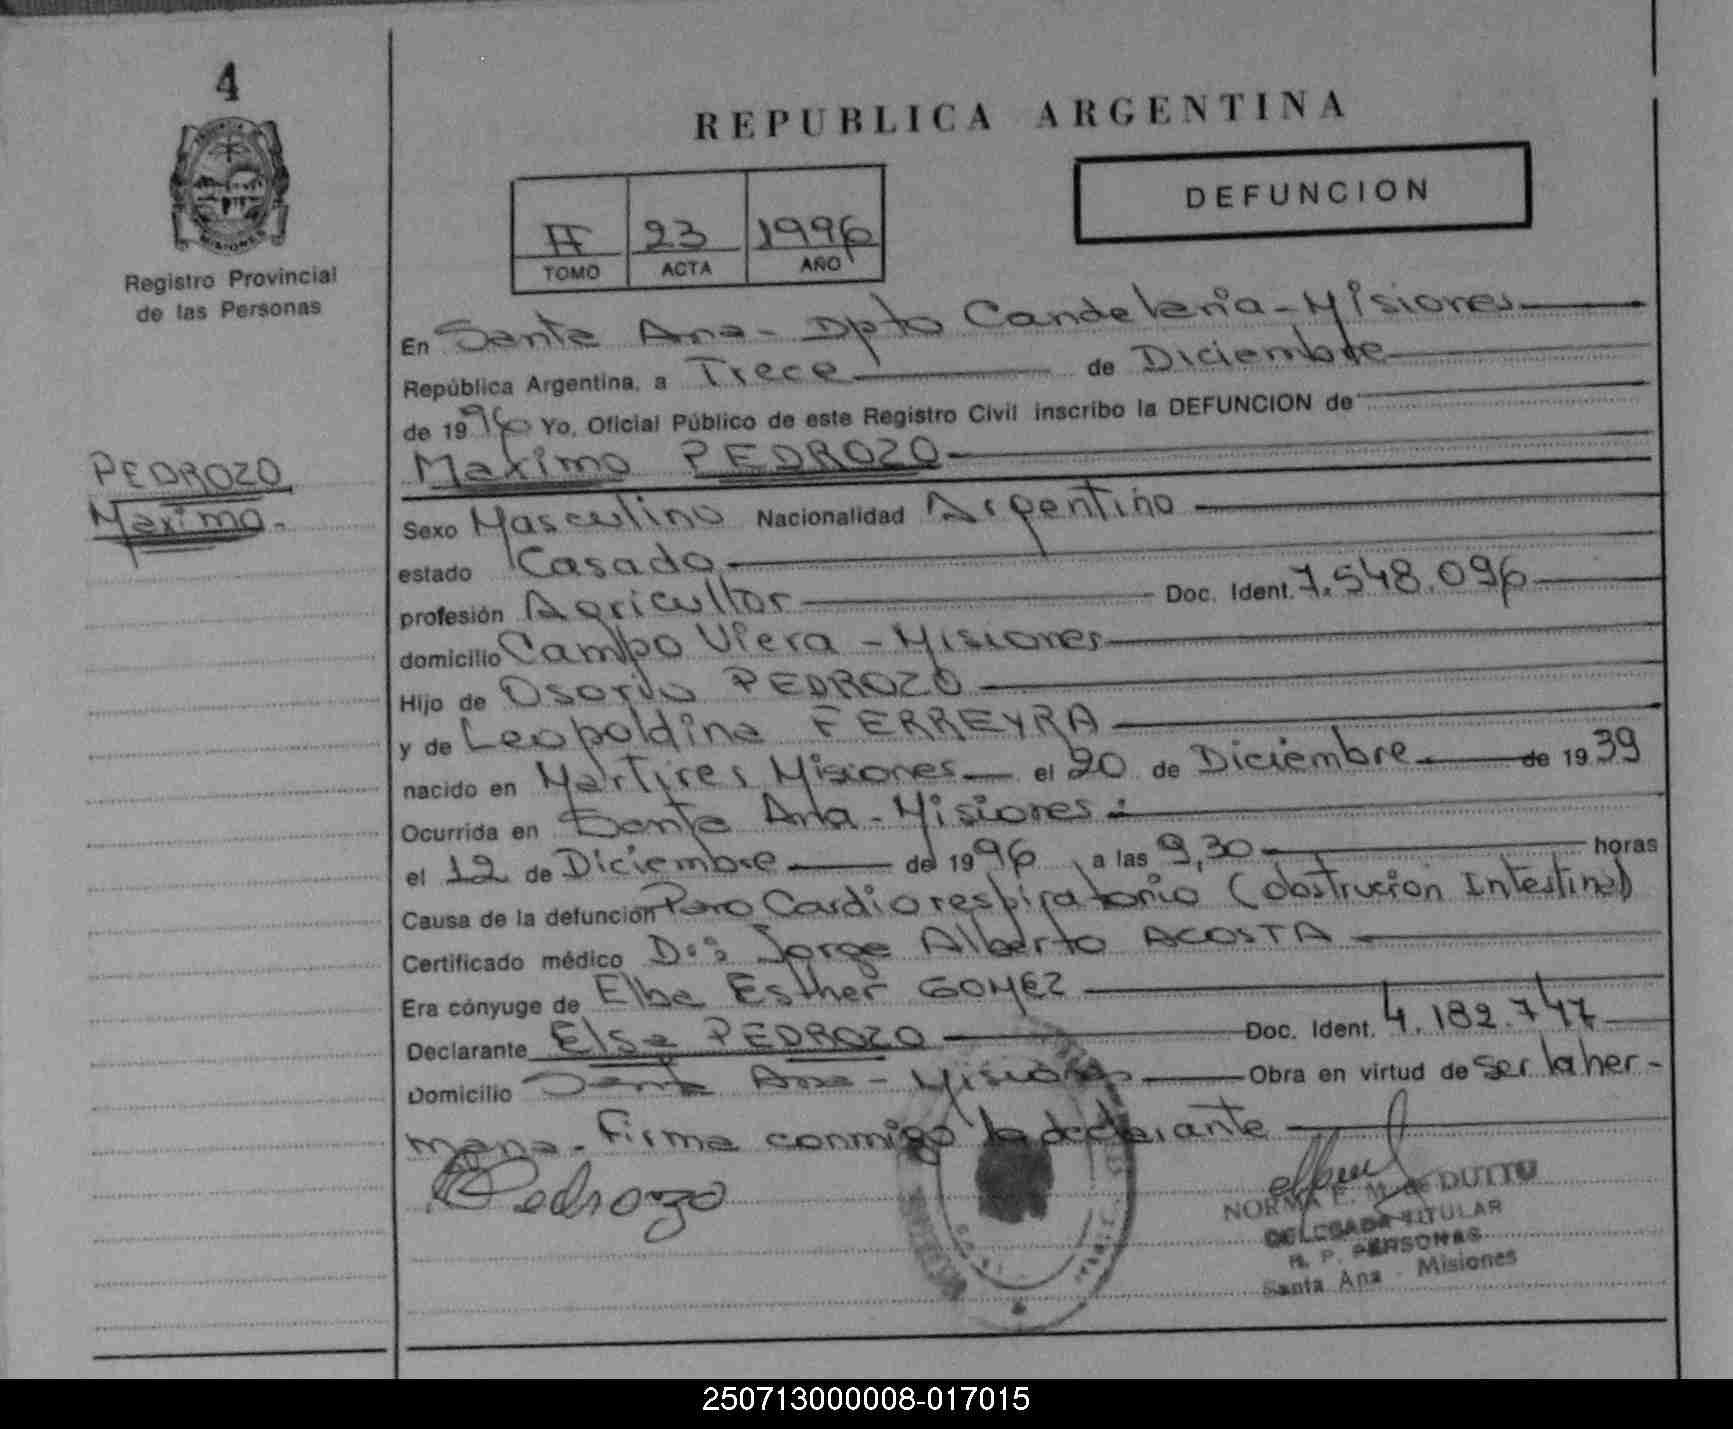 4
MISIONES
Registro Provincial
de las Personas
PEDROZO
Maximo.
REPUBLICA ARGENTINA
DEFUNCION
II 23 1996
TOMO ACTA AÑO
En Santa Ana - Dpto Candelaria - Misiones
República Argentina, a Trece de Diciembre
de 1996 Yo, Oficial Público de este Registro Civil inscribo la DEFUNCION de
Maximo PEDROZO
Sexo Masculino Nacionalidad Argentino
estado Casado
profesión Agricultor Doc. Ident. 7.548.096
domicilio Campo Viera - Misiones
Hijo de Osorio PEDROZO
y de Leopoldina FERREYRA
nacido en Martires Misiones el 20 de Diciembre de 1939
Ocurrida en Santa Ana - Misiones
el 12 de Diciembre de 1996 a las 9,30 horas
Causa de la defunción Paro Cardiorespiratorio (obstrucion Intestinal)
Certificado médico Dr: Jorge Alberto ACOSTA
Era cónyuge de Elba Esther GOMEZ
Declarante Elsa PEDROZO Doc. Ident. 4.182.747
Domicilio Santa Ana - Misiones Obra en virtud de ser la her-
mana. Firma conmigo la declarante
Pedrozo
NORMA E. M. de DUTTO
DELEGADA TITULAR
R. P. PERSONAS
Santa Ana - Misiones
250713000008-017015